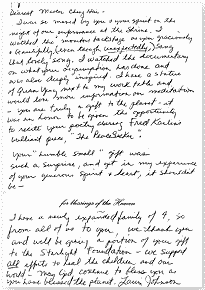 Dearest Master Ching Hai -
I was so moved by you & your spirit on the
night of our performance at the Shrine. I
watched the monitor backstage as you graciously
& beautifully, (even though unexpectedly) sang
the lovely song. I watched the documentary
on what your organization has done and
was also deeply inspired. I have a statue
of Quan Yin next to my work table and
would love more information on meditation
- you are truly a gift to the planet - it
was an honor to be given the opportunity
to recite your poetry during Fred Karlin's
brilliant piece, "The Peace Seeker".
Your "humble small" gift was
such a surprise, and yet in my experience
of your generous spirit & heart, it shouldn't
be -
for the
I have a newly expanded family of 4, so
from all of us to you, we thank you
and will be giving a portion of your gift
to the Starlight Foundation - we support
all efforts to heal the children and our
world - May God continue to bless you as
you have blessed the planet. Laurie Johnson